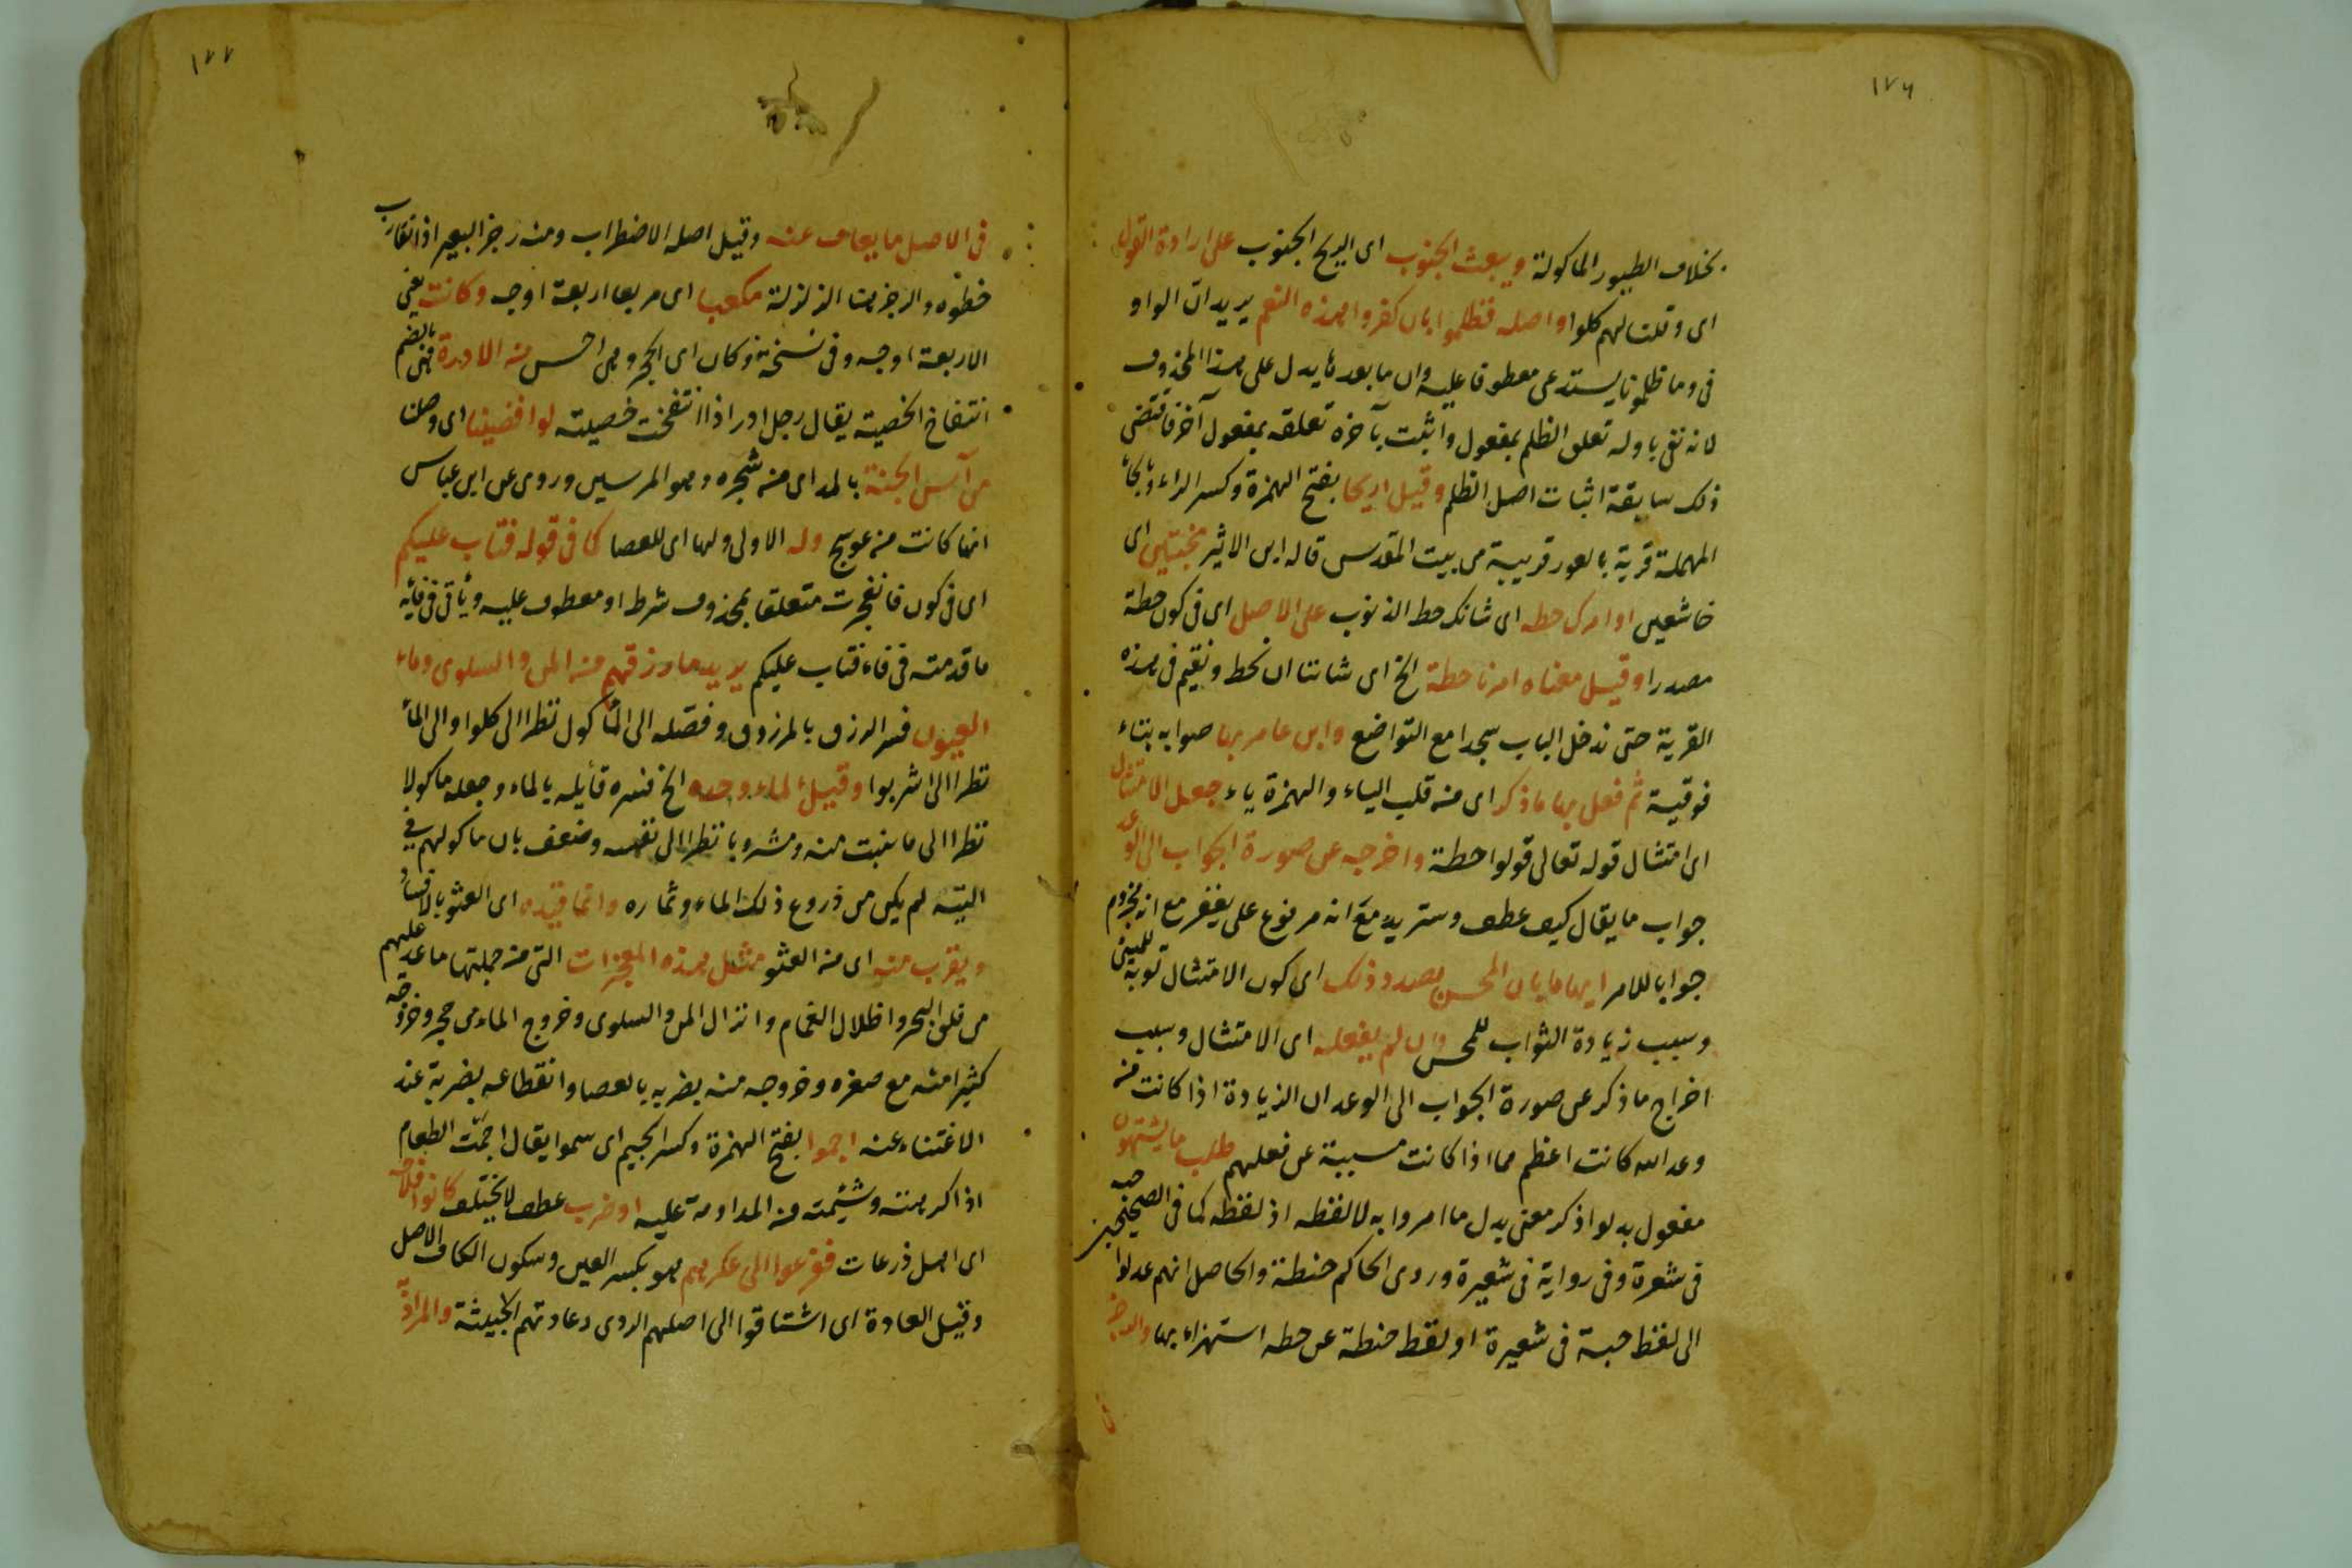 ١٧٦
بخلاف الطيور الماكولة ويبعث الجنوب اى الريح الجنوب على ارادة القول
اى وقلنا لهم كلوا واصله فظلموا بان كفروا بهذه النعم يريد ان الواو
فى وما ظلمونا يستدعى معطوفا عليه وان ما بعدها يدل على هذا المحذوف
لانه نفى باوله تعلق الظلم بمفعول واثبت بآخره تعلقه بمفعول آخر فاقتضى
ذلك سابقة اثبات اصل الظلم وقيل اريحا بفتح الهمزة وكسر الراء وبالحاء
المهملة قرية بالغور قريبة من بيت المقدس قاله ابن الاثير مخبتين اى
خاشعين او امرك حطه اى شانك حط الذنوب على الاصل اى فى كون حطة
مصدرا وقيل معناه امرنا حطة الخ اى شاننا ان نحط ونقيم فى هذه
القرية حتى ندخل الباب سجدا مع التواضع وابن عامر بها صوابه بتاء
فوقية ثم فعل بها ما ذكر اى من قلب الياء والهمزة ياء جعل الامتثال
اى امتثال قوله تعالى قولوا حطة واخرجه عن صورة الجواب الى الوعد
جواب ما يقال كيف عطف وسنزيد مع انه مرفوع على يغفر مع انه مجزوم
جوابا للامر ايهاما بان المحسن بصدد ذلك اى كون الامتثال توبة للمسئ
وسبب زيادة الثواب للمحسن وان لم يفعله اى الامتثال وسبب
اخراج ما ذكر عن صورة الجواب الى الوعد ان الزيادة اذا كانت من
وعد الله كانت اعظم مما اذا كانت مسببة عن فعلهم طلب ما يشتهون
مفعول بدلوا ذكر معنى بدل ما امروا به لا لفظه اذ لفظه كما فى الصحيحين حبه
فى شعرة وفى رواية فى شعيرة وروى الحاكم حنطة والحاصل انهم عدلوا
الى لفظ حبة فى شعيرة او لفظ حنطة عن حطه استهزاء بها والرجز
١٧٧
فى الاصل ما يعاف عنه وقيل اصله الاضطراب ومنه رجز البعير اذا تقارب
خطوه والرجز هنا الزلزلة مكعبا اى مربعا اربعة اوجه وكانت يعنى
الاربعة اوجه وفى نسخة وكان اى الحجر وهى احسن من الادرة هى بالضم
انتفاخ الخصية يقال رجل ادر اذا انتفخت خصيته لو افضينا اى وصلنا
من آس الجنة بالمد اى من شجره وهو المرسين وروى عن ابن عباس
انها كانت من عوسج وله الاولى ولها اى للعصا كما فى قوله فتاب عليكم
اى فى كون فانفجرت متعلقا بمحذوف شرط او معطوف عليه ويأتى فى فائه
ما قدمته فى فاء فتاب عليكم يريد ما رزقهم من المن والسلوى وماء
العيون فسر الرزق بالمرزوق وفصله الى المأكول نظرا الى كلوا والى الماء
نظرا الى اشربوا وقيل الماء وحده الخ فسره قائله بالماء وجعله ماكولا
نظرا الى ما ينبت منه ومشروبا نظرا الى نفسه وضعف بان ماكولهم فى
التيه لم يكن من زروع ذلك الماء وثماره وانما قيده اى العثو بالافساد
ويقرب منه اى من العثو مثل هذه المعجزات التى من جملتها ما عد عليهم
من فلق البحر واظلال الغمام وانزال المن والسلوى وخروج الماء من حجر وخروجه
كثيرا منه مع صغره وخروجه منه بضربه بالعصا وانقطاعه بضربة عند
الاغتناء عنه اجموا بفتح الهمزة وكسر الجيم اى سموا يقال اجمت الطعام
اذا كرهته وشيمته من المداومة عليه او ضرب عطف لا يختلف كانوا فلاحة
اى اهل زرعات فنزعوا الى عكرهم هو بكسر العين وسكون الكاف الاصل
وقيل العادة اى اشتاقوا الى اصلهم الردى وعادتهم الخبيثة والمراد به